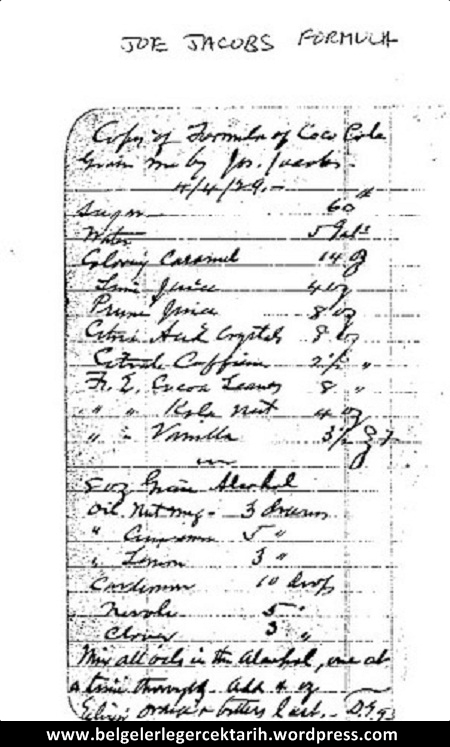 JOE JACOBS FORMULA
Copy of Formula of Coca Cola
Given me by Jos. Jacobs
4/4/29.-
Sugar 60 #
Water 5 Gals
Coloring Caramel 14 oz
Lime Juice 4 oz
Prune Juice 8 oz
Citric Acid Crystals 8 oz
Citrate Caffein 2 1/2 "
Fl. E. Cocoa Leaves 8 "
" " Kola Nut 4 oz
" " Vanilla 3 1/2
8 oz Grain Alcohol
Oil. Nutmeg - 3 drams
" Cinnamon 5 "
" Lemon 3 "
Cardimon 10 drops
Nerole 5 "
Cloves 3 "
Mix all oils in the Alcohol, one at
a time thoroughly. Add 4 oz
Elixir orange + bitters last. -
www.belgelerlegercektarih.wordpress.com